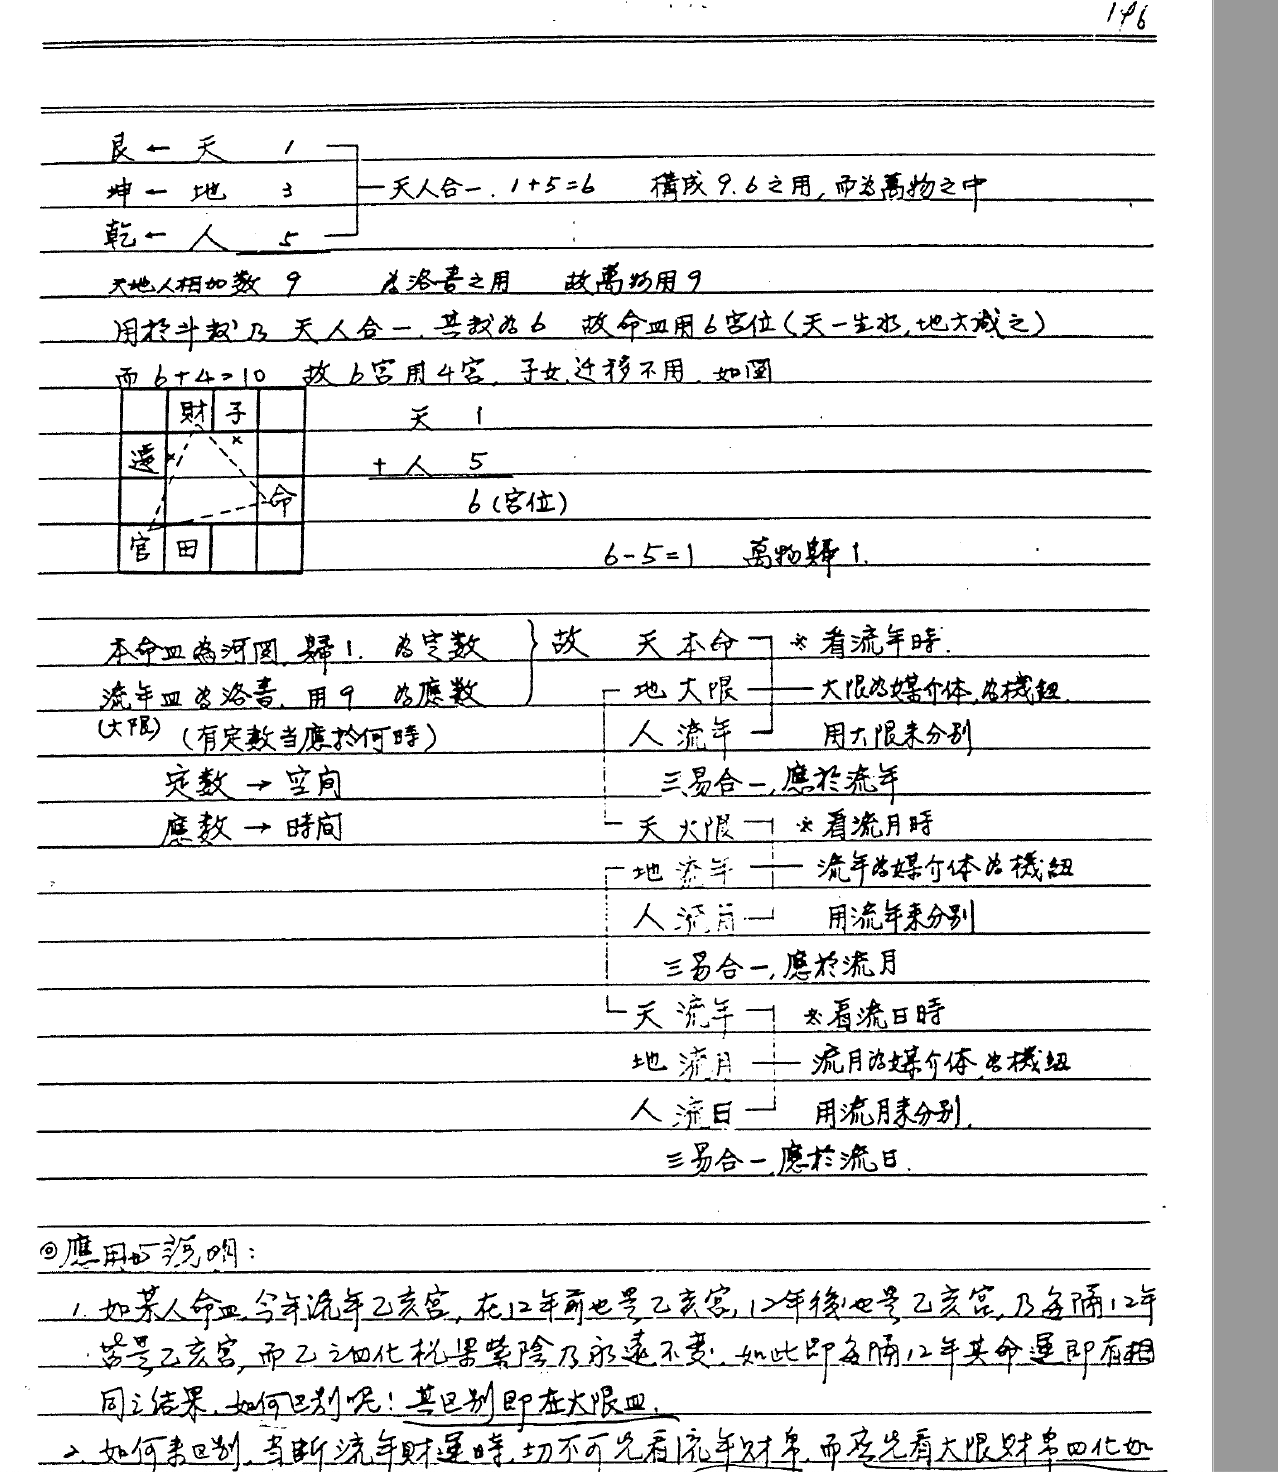 146
艮 ← 天 1
坤 ← 地 3
乾 ← 人 5
天人合一. 1+5=6 構成9.6之用,而為萬物之中
天地人相加数 9 為洛書之用 故萬物用9
用於斗数乃 天人合一.其数為6 故命皿用6宮位(天一生水,地六成之)
而 6+4=10 故6宮用4宮. 子女.迁移不用. 如圖
財 子
遷
命
官 田
天 1
+ 人 5
6 (宮位)
6-5=1 萬物歸1.
本命皿為河図.歸1. 為定数
流年皿為洛書. 用9 為應数
(大限) (有定数当應於何時)
定数 → 空间
應数 → 時间
故 天 本命 ※看流年時.
地 大限 大限為媒介体,為機紐.
人 流年 用大限来分别
三易合一,應於流年
天 大限 ※看流月時
地 流年 流年為媒介体為機紐
人 流月 用流年来分别
三易合一,應於流月
天 流年 ※看流日時
地 流月 流月為媒介体.為機紐
人 流日 用流月来分别.
三易合一,應於流日.
◎應用與説明:
1. 如某人命皿,今年流年乙亥宮,在12年前也是乙亥宮,12年後也是乙亥宮,乃每隔12年
皆是乙亥宮,而乙之四化机梁紫陰乃永遠不变.如此即每隔12年其命運即有相
同之结果.如何区别呢!其区别即在大限皿.
2. 如何来区别.当断流年財運時.切不可先看流年財帛.而应先看大限財帛四化如